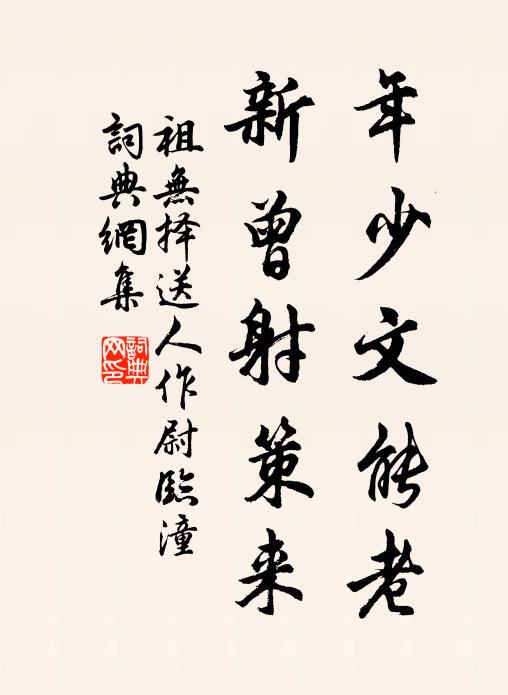 年少文能老
新曾射策来
祖無择送人作尉臨潼
詞典網集
詞典
网印